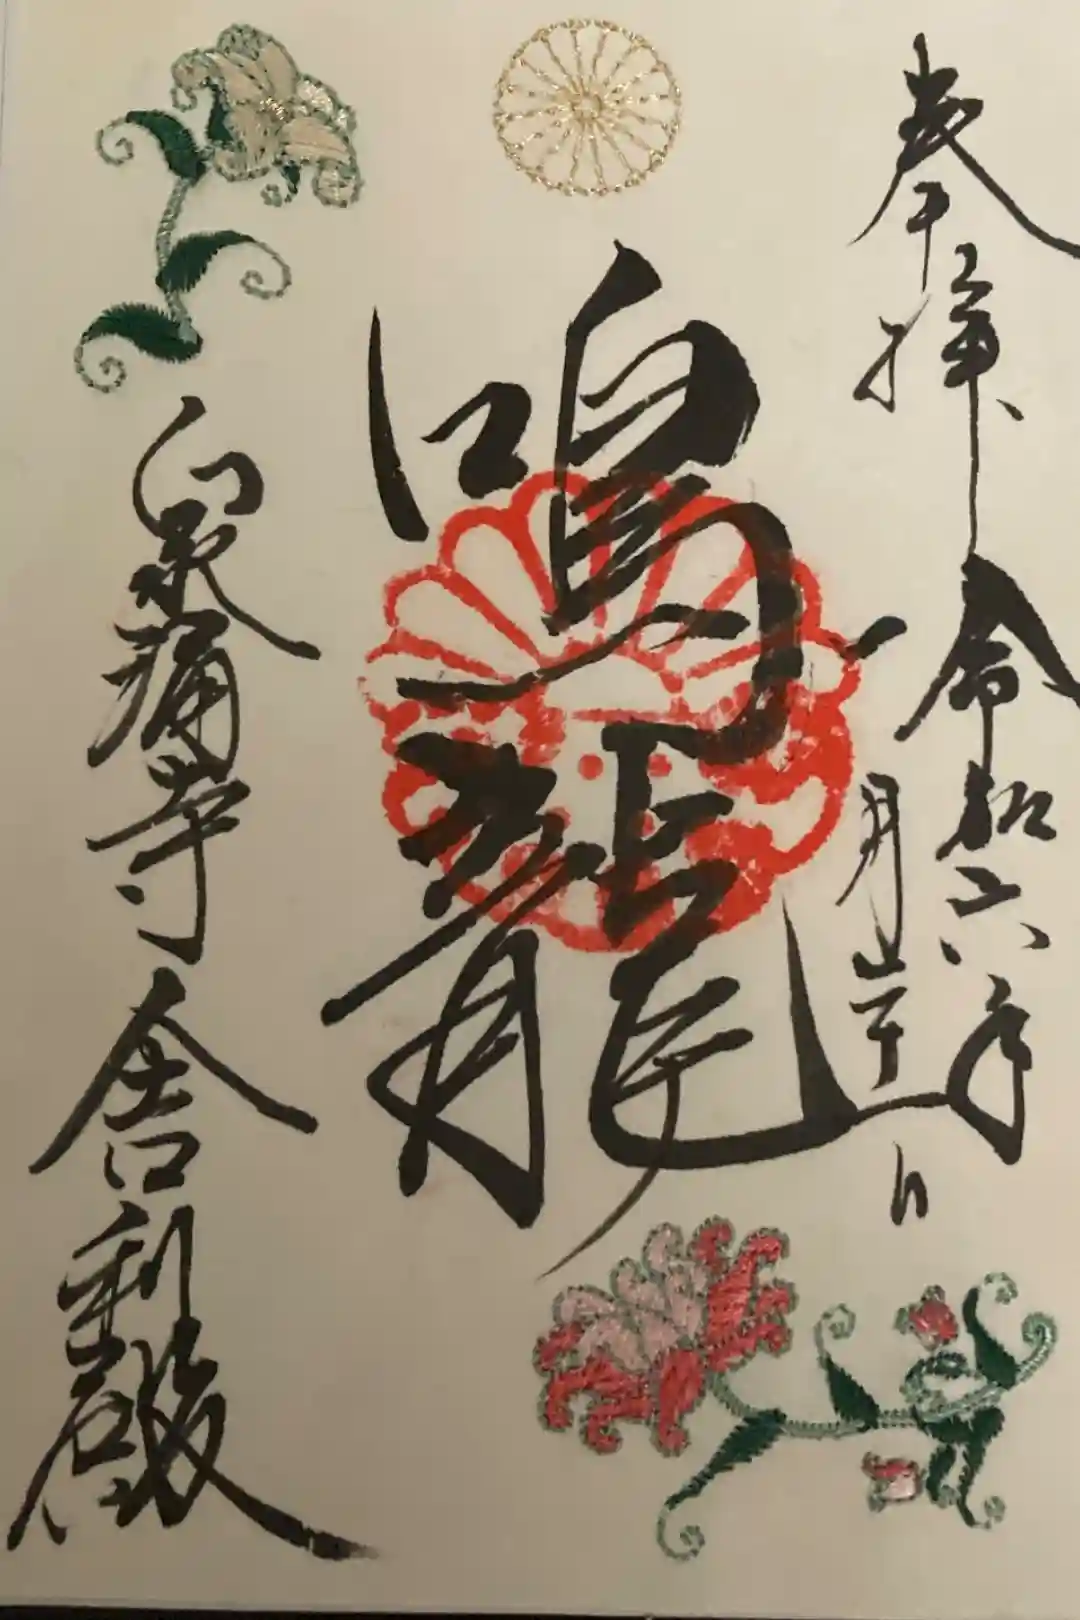 奉拝 令和六年
一月 日
鳴龍
泉涌寺 舎利殿